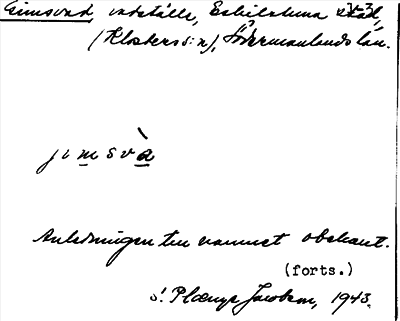 Gimsvad, vadställe, Eskilstuna stad,
(Klosters s:n), Södermanlands län.
jimsvà
Anledningen till namnet obekant.
(forts.)
1943.